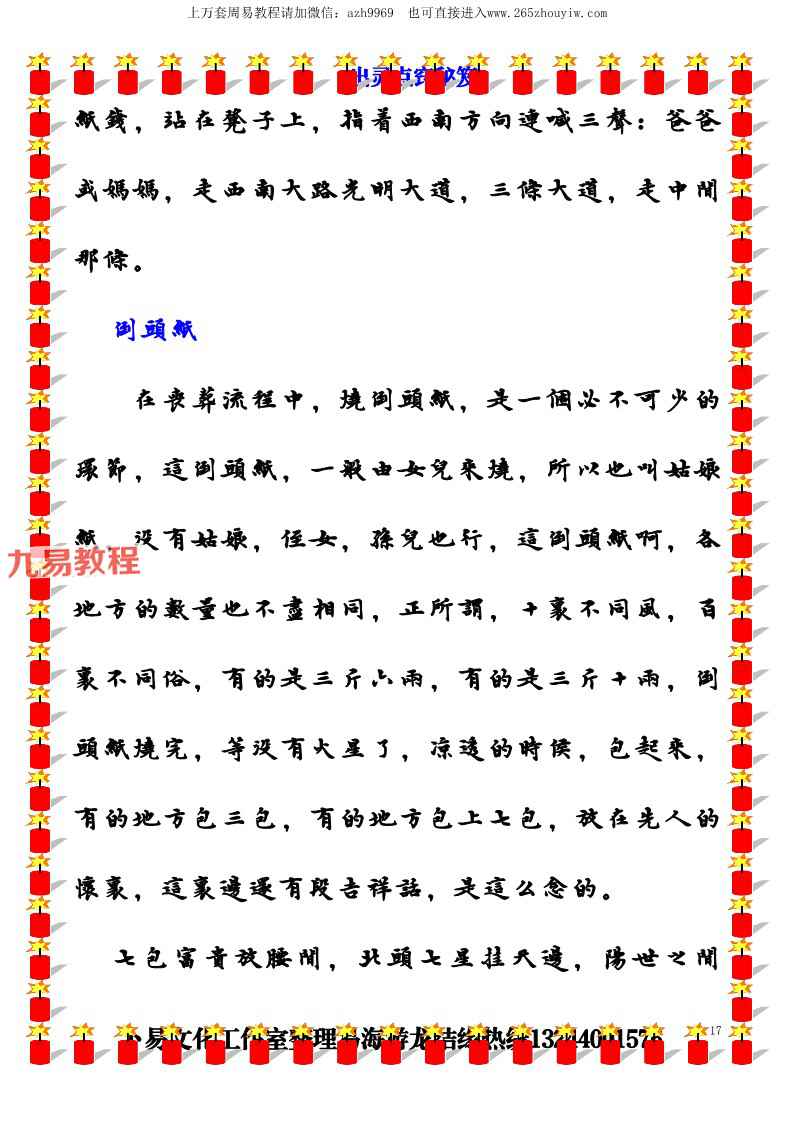 上万套周易教程请加微信：azh9969　也可直接进入www.265zhouyiw.com
紙錢，站在凳子上，指着西南方向連喊三聲：爸爸
或媽媽，走西南大路光明大道，三條大道，走中間
那條。
倒頭紙
在喪葬流程中，燒倒頭紙，是一個必不可少的
環節，這倒頭紙，一般由女兒來燒，所以也叫姑娘
紙，没有姑娘，侄女，孫兒也行，這倒頭紙啊，各
九易教程
地方的數量也不盡相同，正所謂，十裏不同風，百
裏不同俗，有的是三斤六兩，有的是三斤十兩，倒
頭紙燒完，等没有火星了，凉透的時候，包起來，
有的地方包三包，有的地方包上七包，放在先人的
懷裏，這裏邊還有段吉祥話，是這么念的。
七包富貴放腰間，北頭七星挂天邊，陽世之間
17